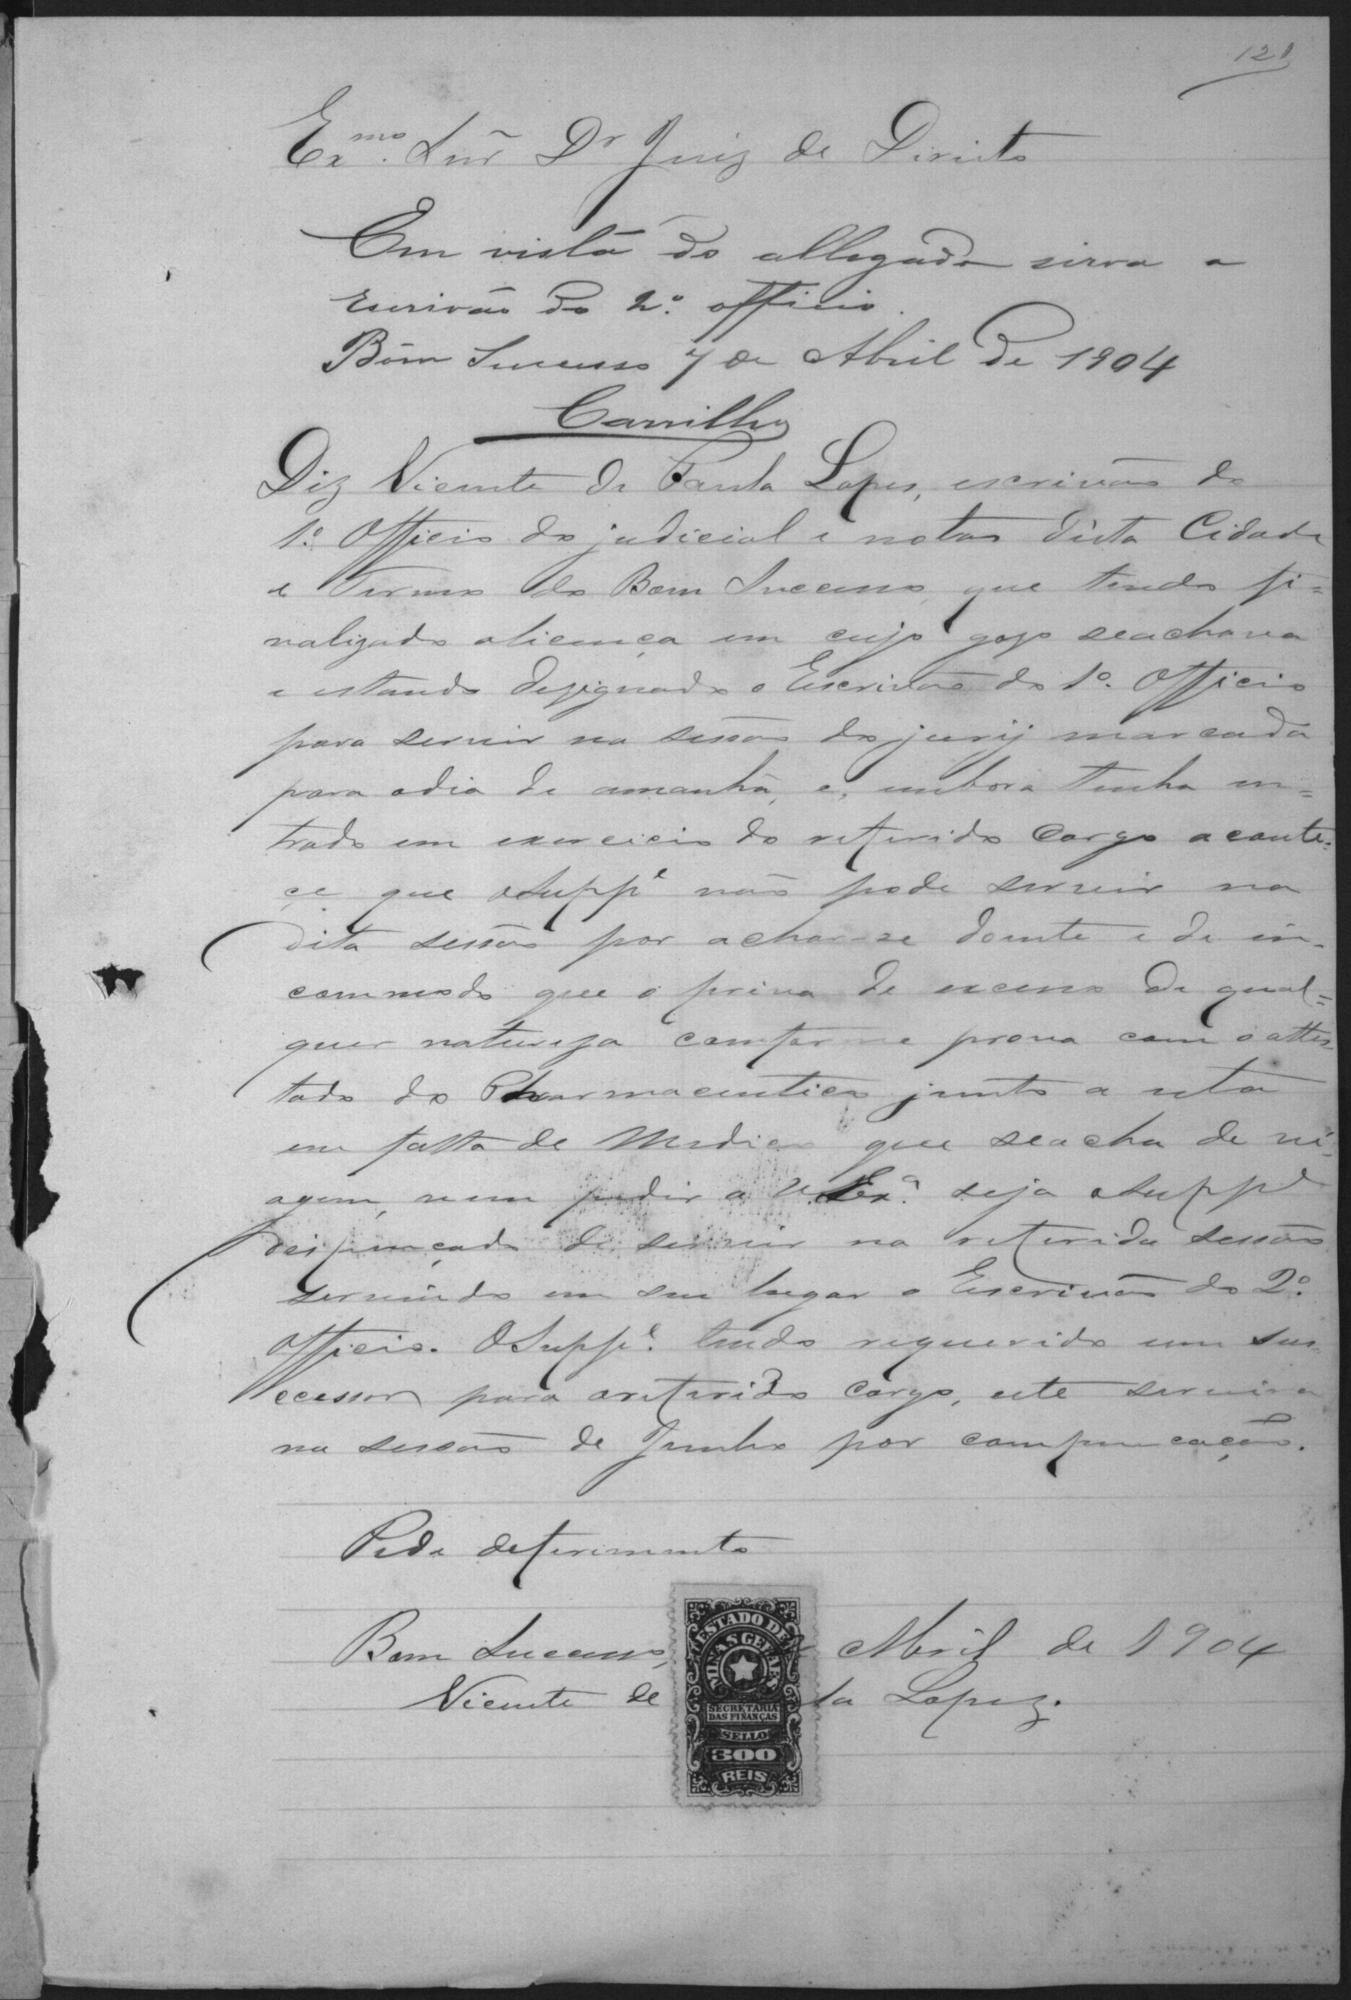 121
Exmo. Snr̃ Dr Juiz de Direito
Em vista do allegado sirva o
Escrivão do 2º officio.
Bôm Sucesso 7 de Abril de 1904
Carrilho
Diz Vicente de Paula Lopes, escrivão do
1º. Officio do judicial e notas d'esta Cidade
e Termo do Bom Successo, que tendo fi=
nalizado alicença em cujo gozo seachava
e estando dezignado o Escrivão do 1º. Officio
para servir na sessão do jury marcada
para odia de amanhã, e, embora tenha en=
trado em exercicio do referido Cargo aconte=
ce que oSuppe não pode servir na
dita sessão por achar-se doente e de in-
commodo que o priva de excesso de qual=
quer natureza comforme prova com o attes
tado do Pharmaceutico junto a esta
em falta de Medico que seacha de vi-
agem, vem pedir a V. Exª. seja oSuppe
despençado de servir na referida sessão
servindo em seu lugar o Escrivão do 2º.
Officio. OSuppe. tendo requerido um suc
cessor para oreferido Cargo, este servira
na sessão de Junho por compençação.
Pede deferimento
Bom Sucesso, Abril de 1904
Vicente de la Lopez.
ESTADO DE
MINAS GERAES
SECRETARIA
DAS FINANÇAS
SELLO
300
REIS